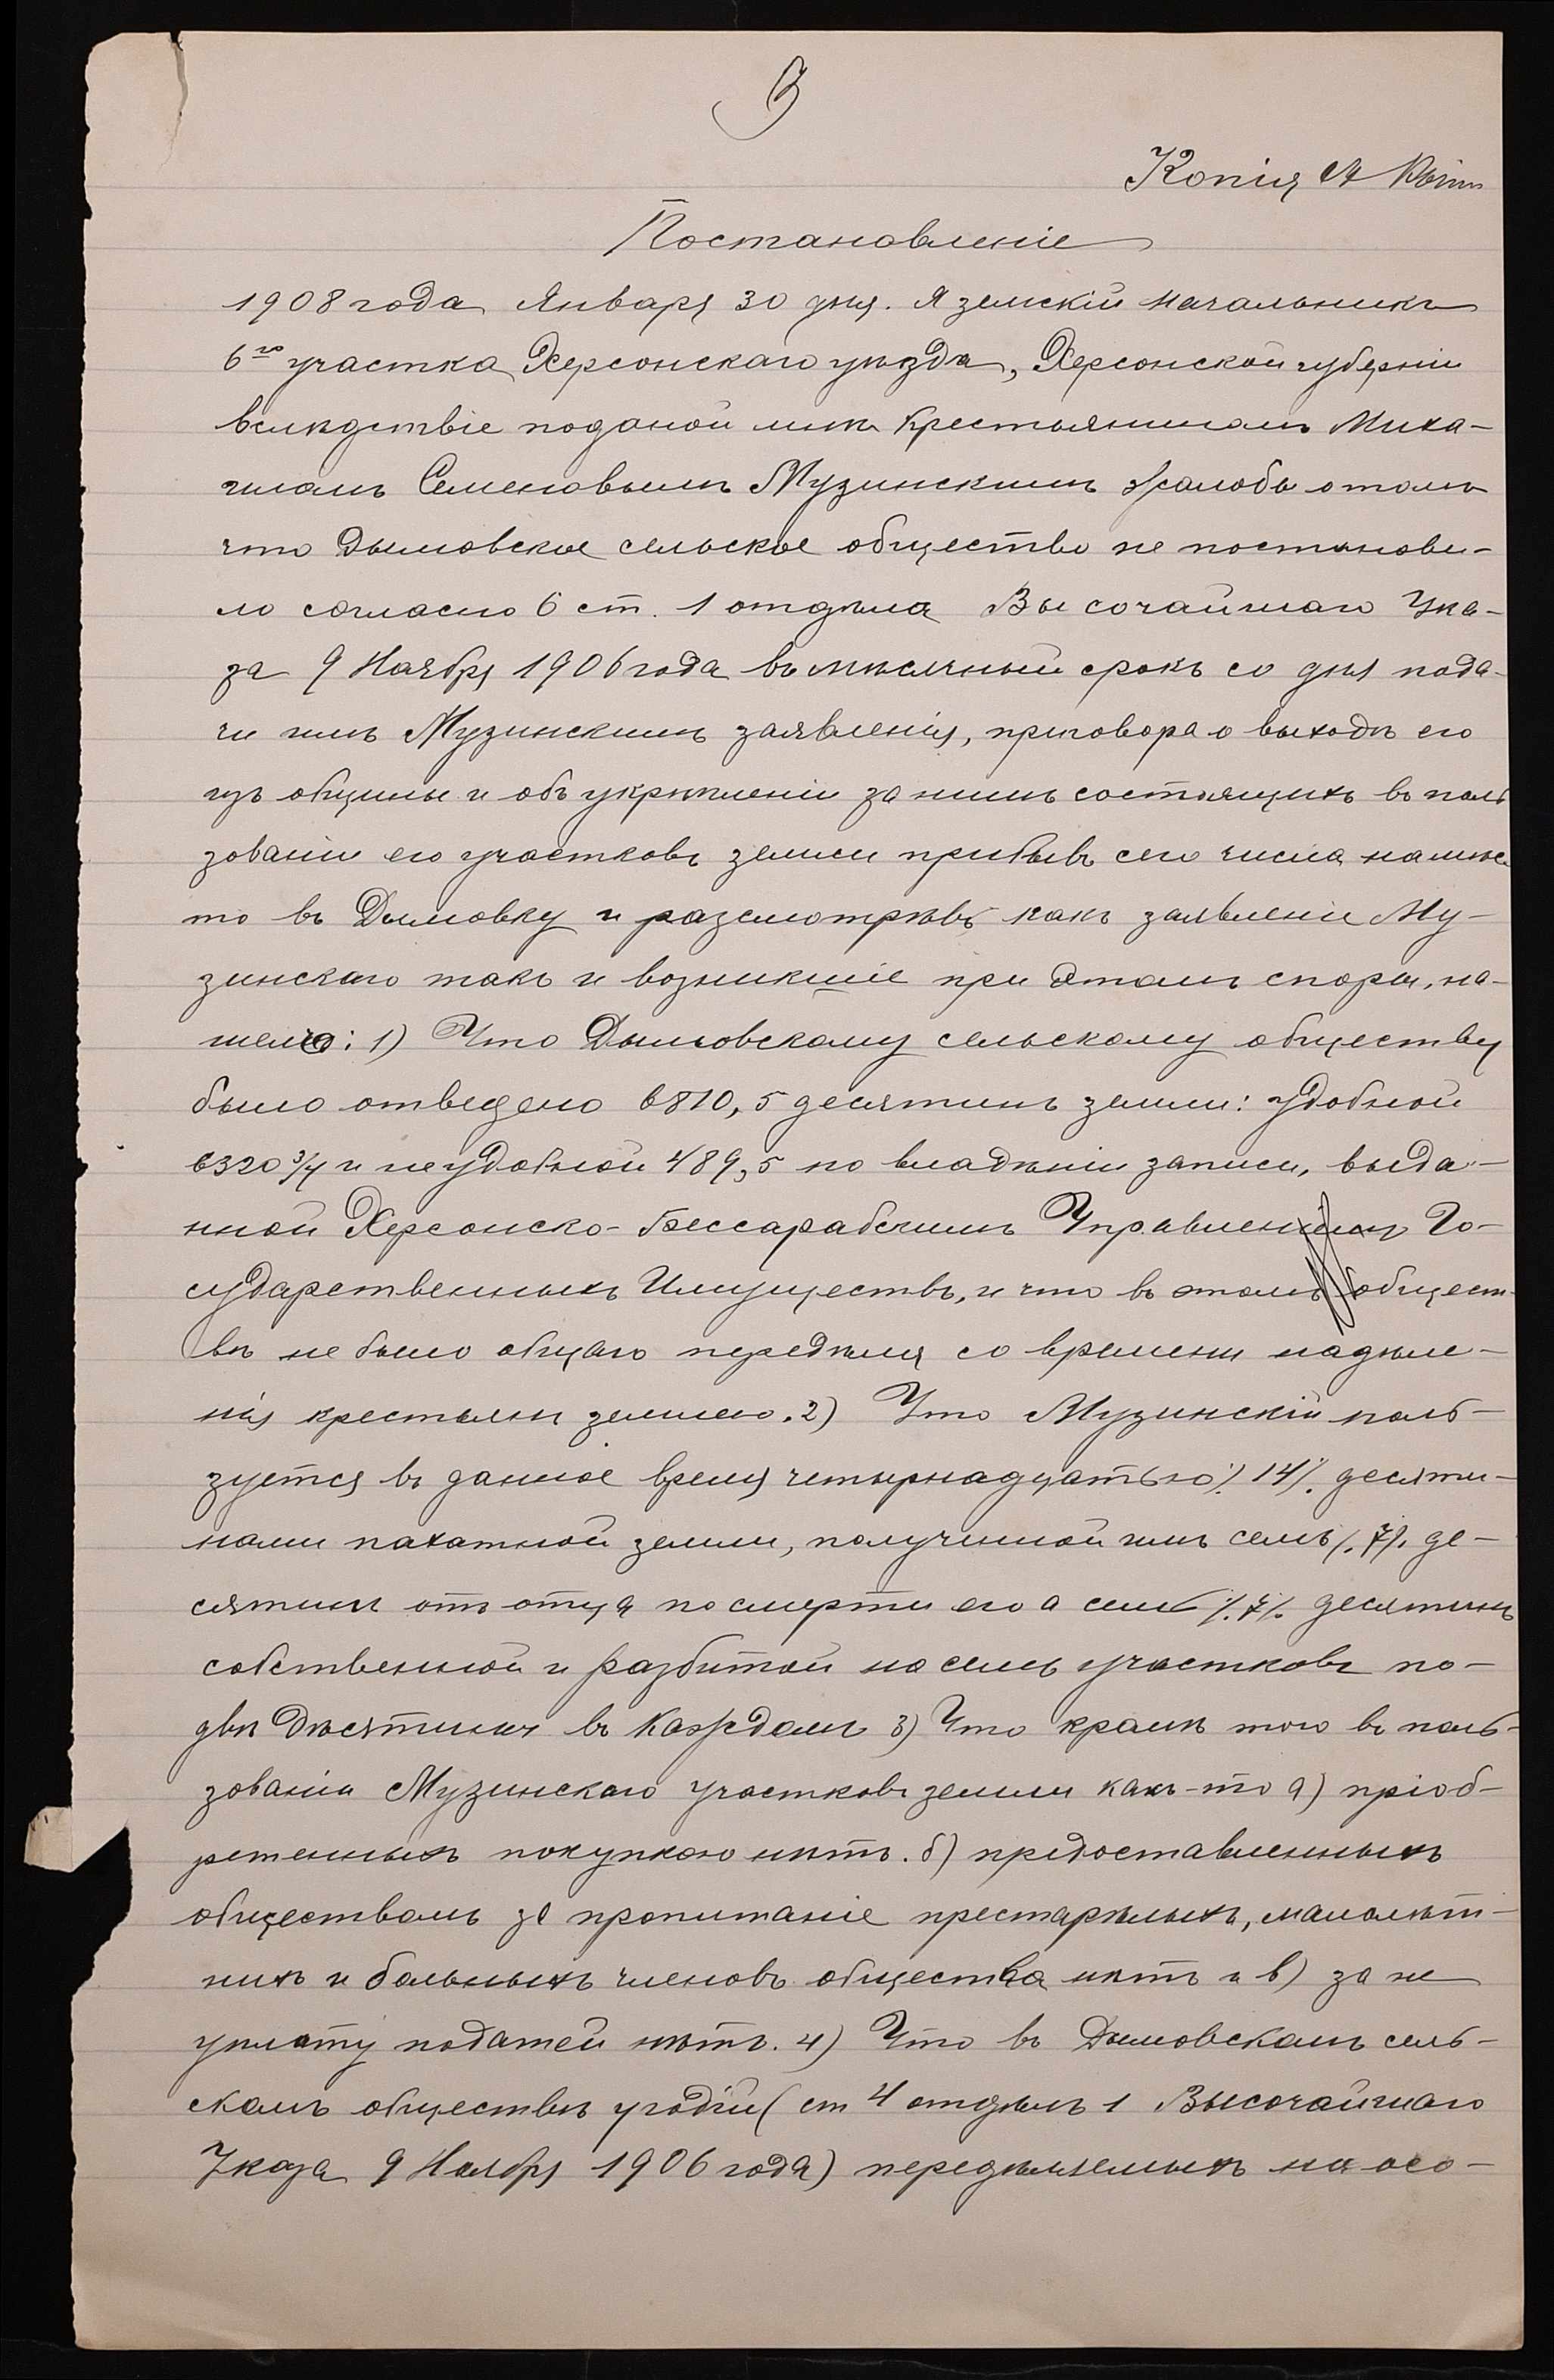 3
Копія съ копіи
Постановленіе
1908 года Января 30 дня. Я земскій начальникъ
6го участка Херсонскаго уѣзда, Херсонской губерніи
вслѣдствіе поданой мнѣ крестьяниномъ Миха-
иломъ Семеновымъ Музинскимъ жалобы о томъ
что Дымовское сельское общество не постанови-
ло согласно 6 ст. 1 отдѣла Высочайшаго Ука-
за 9 Ноября 1906 года въ мѣсячный срокъ со дня пода-
чи имъ Музинскимъ заявленія, приговора о выходѣ его
изъ общины и объ укрѣпленіи за нимъ состоящихъ въ поль
зованіи его участковъ земли прибывъ сего числа на мѣс
то въ Дымовку и разсмотрѣвъ какъ заявленіе Му-
зинскаго такъ и возникшіе при этомъ споры, на-
шелъ: 1) Что Дымовскому сельскому обществу
было отведено 6810,5 десятинъ земли: удобной
6320 3/4 и неудобной 489,5 по владѣніи записи, выда-
нной Херсонско-Бессарабскимъ Управленіемъ Го-
сударственныхъ Имуществъ, и что въ этомъ общест-
вѣ не было общаго передѣла со времени надѣле-
нія крестьянъ землею. 2) Что Музинскій поль-
зуется въ данное время четырнадцатью ./. 14 ./. десяти-
нами пахатной земли, полученной имъ семь ./. 7 ./. де-
сятинъ отъ отца по смерти его а семь ./. 7 ./. десятинъ
собственной и разбитой на семь участковъ по-
двѣ дѣсятины въ каждомъ 3) Что кромѣ того въ поль-
зованіи Музинскаго участковъ земли какъ-то а) пріоб-
ретенныхъ покупкою нѣтъ. б) предоставленныхъ
обществомъ за пропитаніе престарѣлыхъ, малолѣт-
нихъ и больныхъ членовъ общества нѣтъ и в) за не
уплату податей нѣтъ. 4) Что въ Дымовскомъ сель-
скомъ обществѣ угодій (ст 4 отдѣлъ 1 Высочайшаго
Указа 9 Ноября 1906 года) передѣляемыхъ на осо-